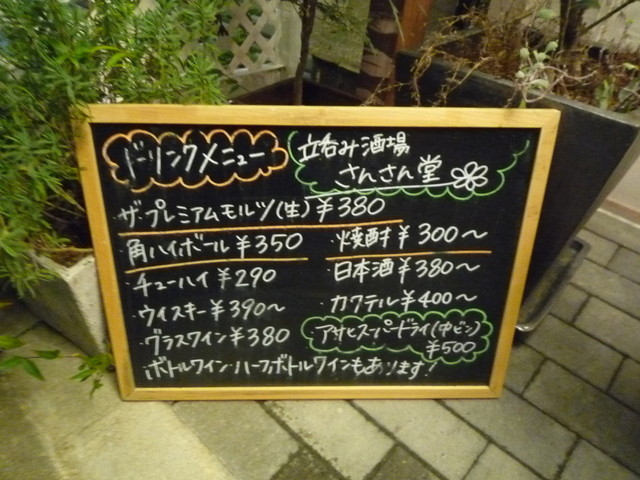 ドリンクメニュー
立呑み酒場
さんさん堂
・ザ・プレミアムモルツ(生)¥380
・角ハイボール¥350
・焼酎¥300～
・チューハイ¥290
・日本酒¥380～
・ウイスキー¥390～
・カクテル¥400～
・グラスワイン¥380
アサヒスーパードライ(中ビン)
¥500
ボトルワイン・ハーフボトルワインもあります!